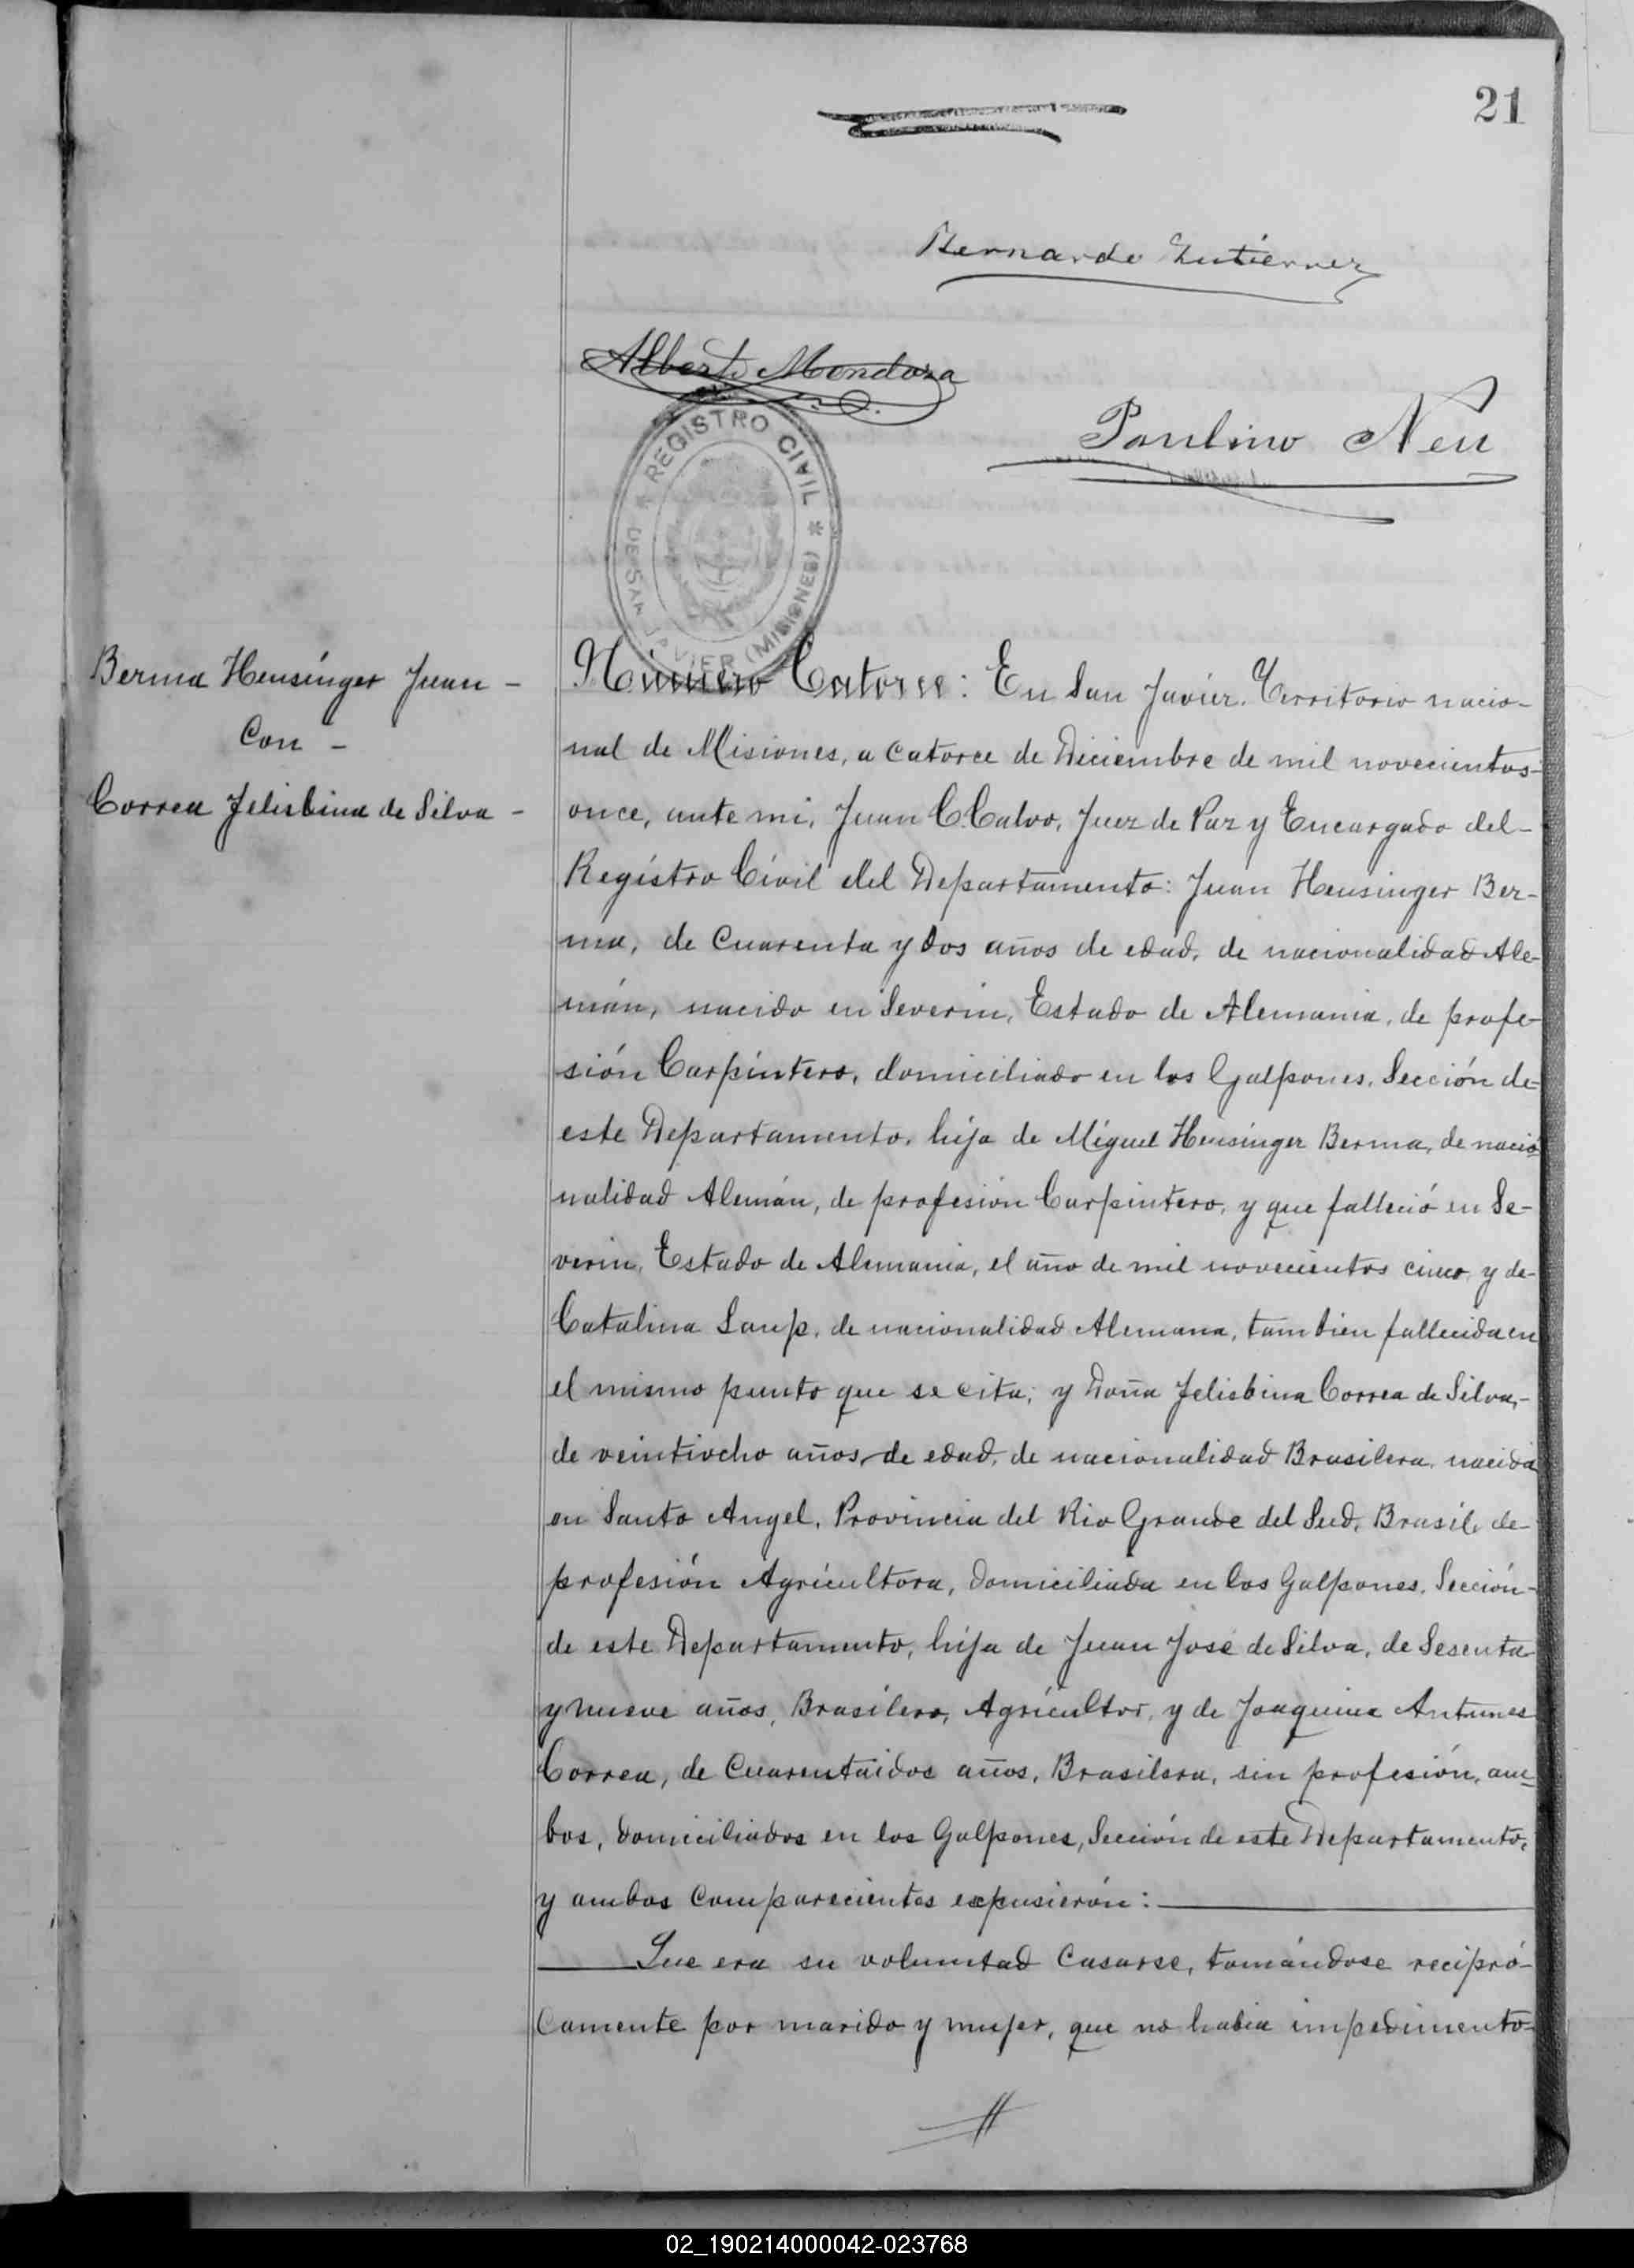 21
Bernardo Gutierrez
Alberto Mendoza
Paulino Neu
REGISTRO CIVIL * DE SAN JAVIER (MISIONES) *
Berma Heusinger Juan -
Con -
Correa Felisbina de Silva -
Número Catorce: En San Javier. Territorio nacio-
nal de Misiones, a catorce de Diciembre de mil novecientos-
once, ante mi, Juan C. Calvo, Juez de Paz y Encargado del-
Registro Civil del Departamento: Juan Heusinger Ber-
ma, de cuarenta y dos años de edad, de nacionalidad Ale-
mán, nacido en Severin, Estado de Alemania, de profe-
sión Carpintero, domiciliado en los Galpones, Sección de-
este Departamento, hijo de Miguel Heusinger Berma, de nacio-
nalidad Alemán, de profesión Carpintero, y que falleció en Se-
verin, Estado de Alemania, el año de mil novecientos cinco, y de-
Catalina Saup, de nacionalidad Alemana, tambien fallecida en
el mismo punto que se cita; y Doña Felisbina Correa de Silva,-
de veintiocho años, de edad, de nacionalidad Brasilera, nacida
en Santo Angel, Provincia del Rio Grande del Sud, Brasil, de-
profesión Agricultora, domiciliada en los Galpones, Sección-
de este Departamento, hija de Juan José de Silva, de Sesenta
y nueve años, Brasilero, Agricultor, y de Joaquina Antunes
Correa, de Cuarentaidos años, Brasilera, sin profesión, am-
bos, domiciliados en los Galpones, Sección de este Departamento,
y ambos comparecientes expusierón:
Que era su voluntad casarse, tomándose recipró-
camente por marido y mujer, que no habia impedimento-
02_190214000042-023768